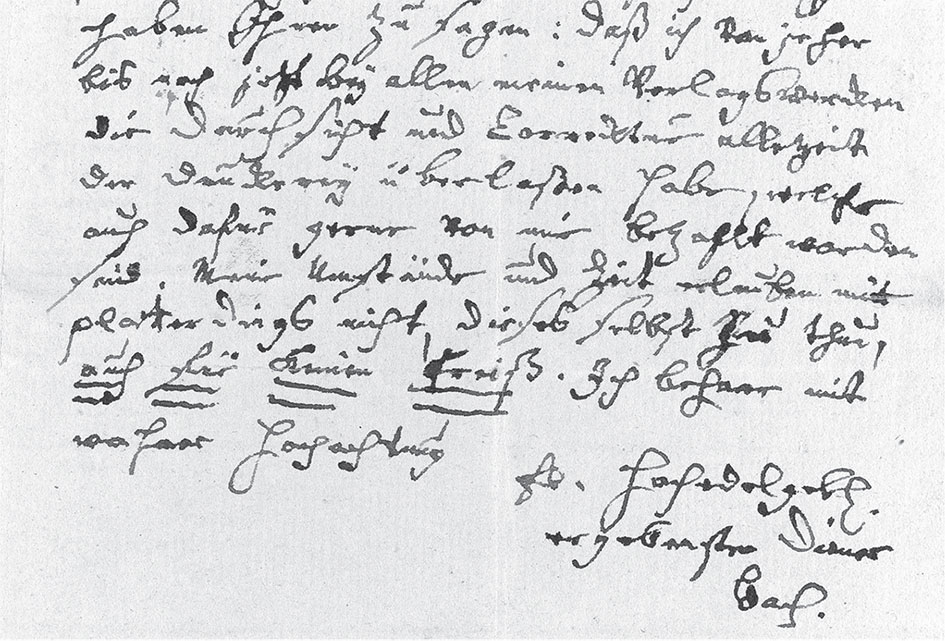 haben Ihnen zu sagen: daß ich von jeher
bis noch jetzt bey allen meinen Verlagswercken
die Durchsicht und Correcktur allezeit
der Druckerey überlaßen habe, welche
auch dafür gerne von mir bezahlt worden
sind. Meine Umstände und Zeit erlauben mir
platterdings nicht, dieses selbst zu thun,
auch für keinen Preiß. Ich beharre mit
wahrer Hochachtung
Ew. Hochedelgeb.
ergebenster Diener
Bach.